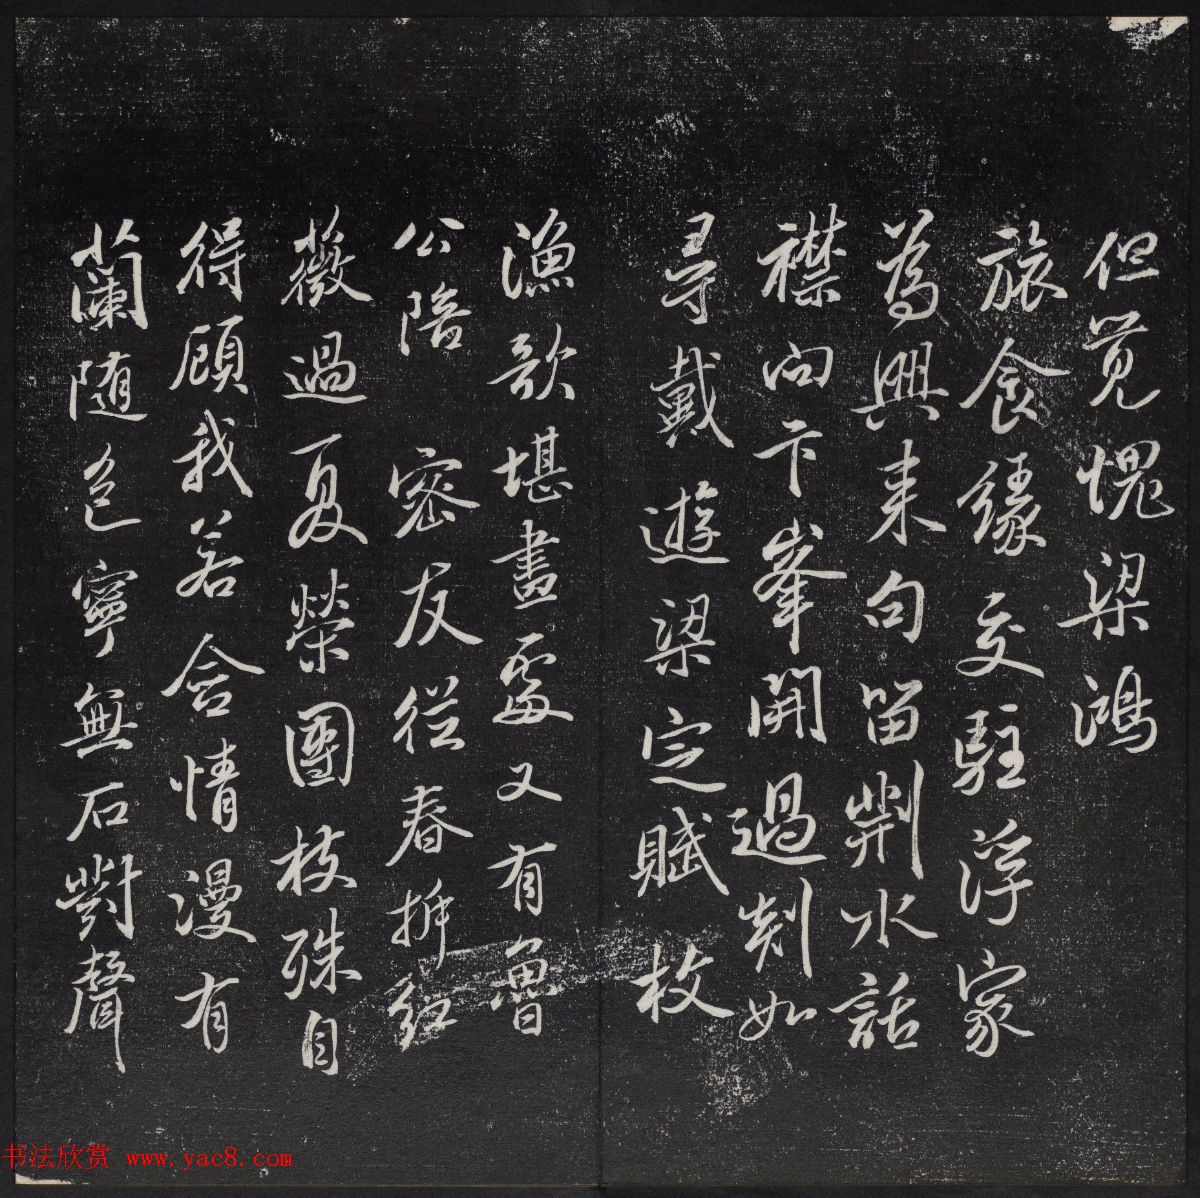 但觉愧梁鴻
旅食緣交駐浮家
為興来句留荆水話
襟向卞峯開過剡如
尋戴遊梁定賦枚
漁歌堪畫處又有魯
公陪 密友從春拆紅
薇過夏榮團枝殊自
得顧我若含情漫有
蘭随色寧無石對聲
书法欣赏 www.yac8.com